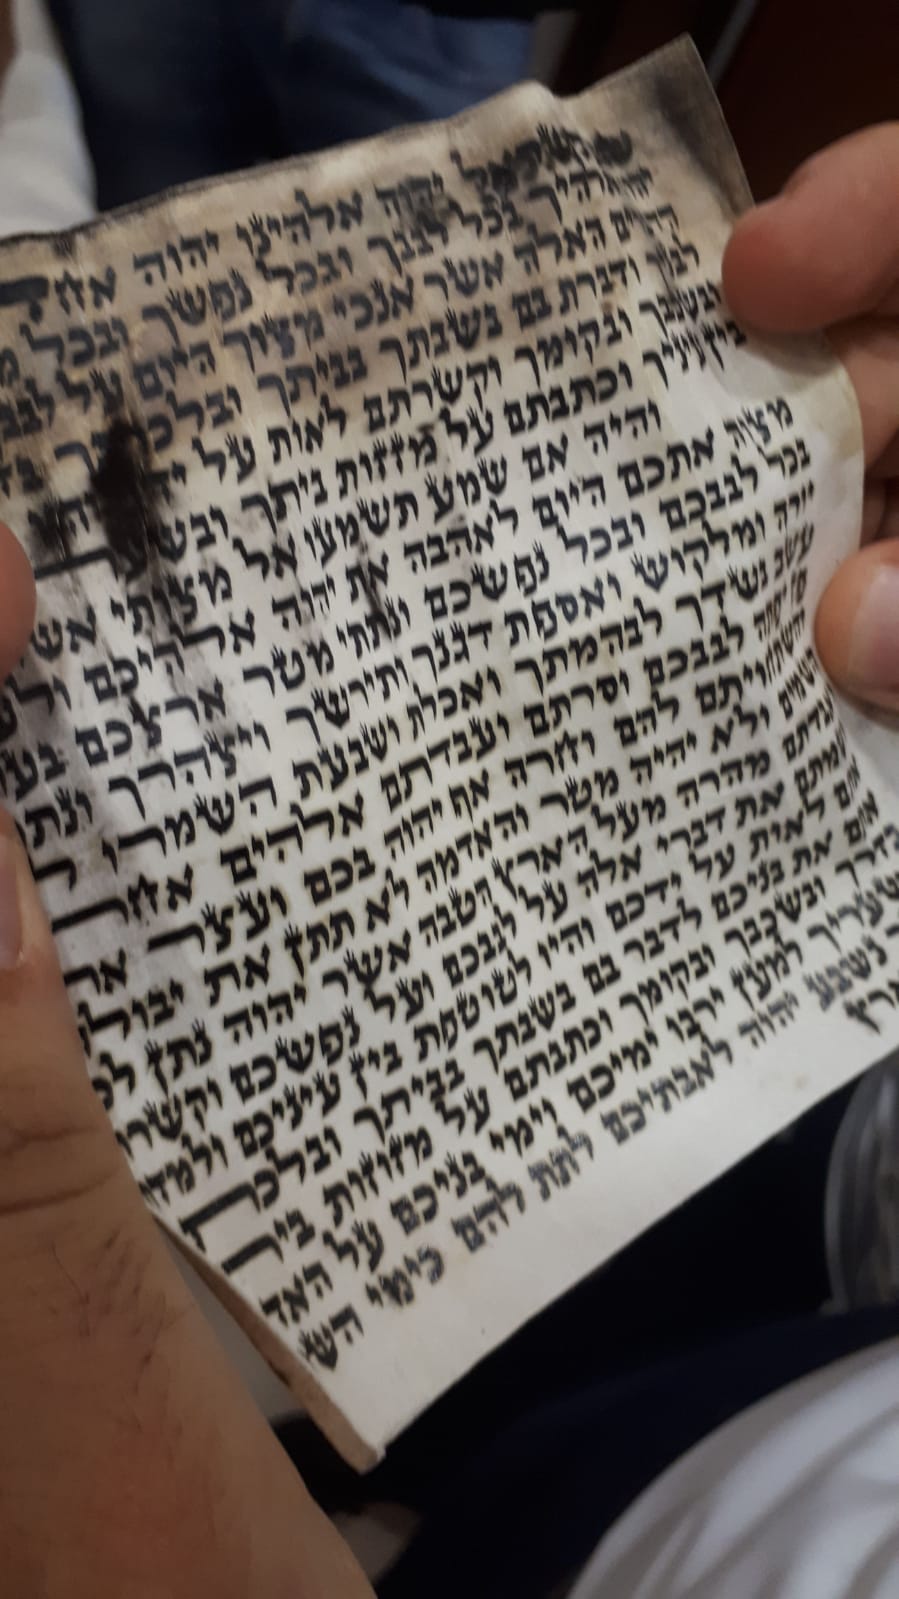 שמע ישראל יהוה אלהינו יהוה אחד
אלהיך בכל לבבך ובכל נפשך ובכל
האלה אשר אנכי מצוך היום על
ודברת בם בשבתך בביתך
ובשכבך ובקומך וקשרתם לאות על
וכתבתם על מזזות ביתך
והיה אם שמע תשמעו אל מצותי
מצוה אתכם היום לאהבה את יהוה אלהיכם
בכל לבבכם ובכל נפשכם ונתתי מטר ארצכם
יורה ומלקוש ואספת דגנך ותירשך ויצהרך
עשב בשדך לבהמתך ואכלת ושבעת השמרו
יפתה לבבכם וסרתם ועבדתם אלהים
והשתחויתם להם וחרה אף יהוה בכם ועצר
השמים ולא יהיה מטר והאדמה לא תתן את
מהרה מעל הארץ הטבה אשר יהוה נתן
את דברי אלה על לבבכם ועל נפשכם
לאות על ידכם והיו לטוטפת בין עיניכם
אתם את בניכם לדבר בם בשבתך בביתך
בדרך ובשכבך ובקומך וכתבתם על מזוזות
למען ירבו ימיכם וימי בניכם על
נשבע יהוה לאבתיכם לתת להם כימי